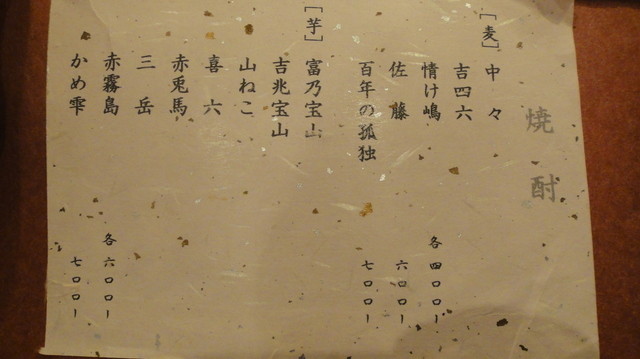 焼酎
［麦］中々
吉四六
情け嶋 各四〇〇ー
佐藤 六〇〇ー
百年の孤独 七〇〇ー
［芋］富乃宝山
吉兆宝山
山ねこ
喜六
赤兎馬
三岳
赤霧島 各六〇〇ー
かめ雫 七〇〇ー